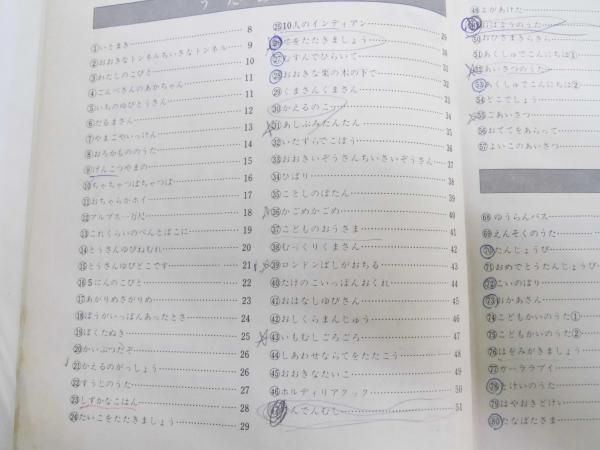 うた
①いとまき 8
②おおきなトンネルちいさなトンネル 9
③わたしのこびと 10
④ごんべさんのあかちゃん 11
⑤いちのゆびとうさん 11
⑥だるまさん 12
⑦やまごやいっけん 13
⑧おろかもののうた 14
⑨げんこつやまの 15
⑩ちゃちゃつぼちゃつぼ 16
⑪おちゃらかホイ 17
⑫アルプス一万尺 18
⑬これくらいのべんとばこに 19
⑭とうさんゆびねむれ 20
⑮とうさんゆびどこです 21
⑯5にんのこびと 22
⑰あがりめさがりめ 23
⑱ぼうがいっぽんあったとさ 24
⑲ぼくたぬき 25
⑳かいぶつだぞ 26
㉑かえるのがっしょう 26
㉒すうじのうた 27
㉓しずかなこはん 28
㉔たいこをたたきましょう 29
㉕10人のインディアン 29
㉖てをたたきましょう
㉗むすんでひらいて 31
㉘おおきな栗の木の下で
㉙くまさんくまさん
㉚かえるのこ
㉛あしぶみたんたん 34
㉜いたずらでこぼう 35
㉝おおきいぞうさんちいさいぞうさん 37
㉞ひばり 38
㉟ことしのぼたん 39
㊱かごめかごめ 40
㊲こどものおうさま 41
㊳むっくりくまさん 42
㊴ロンドンばしがおちる 43
㊵たけのこいっぽんおくれ 44
㊶おはなしゆびさん 45
㊷おしくらまんじゅう 46
㊸いもむしごろごろ 47
㊹しあわせならてをたたこう 48
㊺おおきなたいこ 49
㊻ホルディリアクック 50
㊼でんでんむし 51
㊽よがあけた
㊾おはようのうた
㊿おひさまきらきら
51あくしゅでこんにちは①
52あいさつのうた
53あくしゅでこんにちは②
54どこでしょう
55ごあいさつ
56おててをあらって
57よいこのあいさつ
68ゆうらんバス
69えんそくのうた
70たんじょうび
71おめでとうたんじょうび
72こいのぼり
73おかあさん
74こどもかいのうた①
75こどもかいのうた②
76はをみがきましょう
77ウーララアイ
78とけいのうた
79はやおきどけい
80たなばたさま